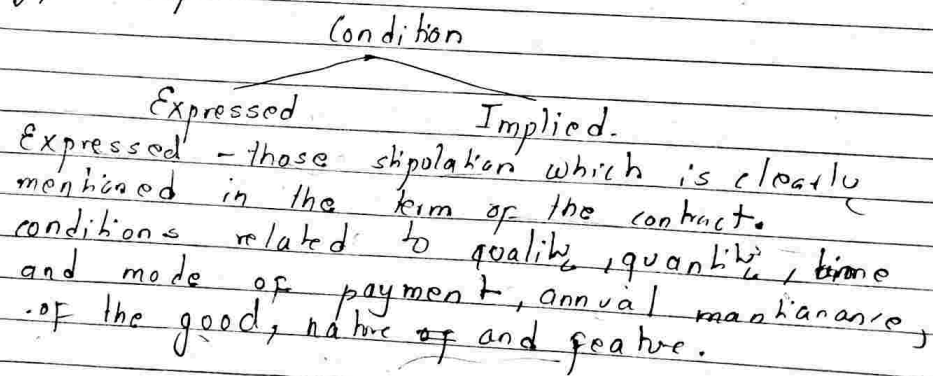 Condition
Expressed Implied.
Expressed - those stipolation which is clearly
mentioned in the term of the contract.
conditions related to quality, quantity, time
and mode of payment, annual mantianance,
of the good, nature of and feature.